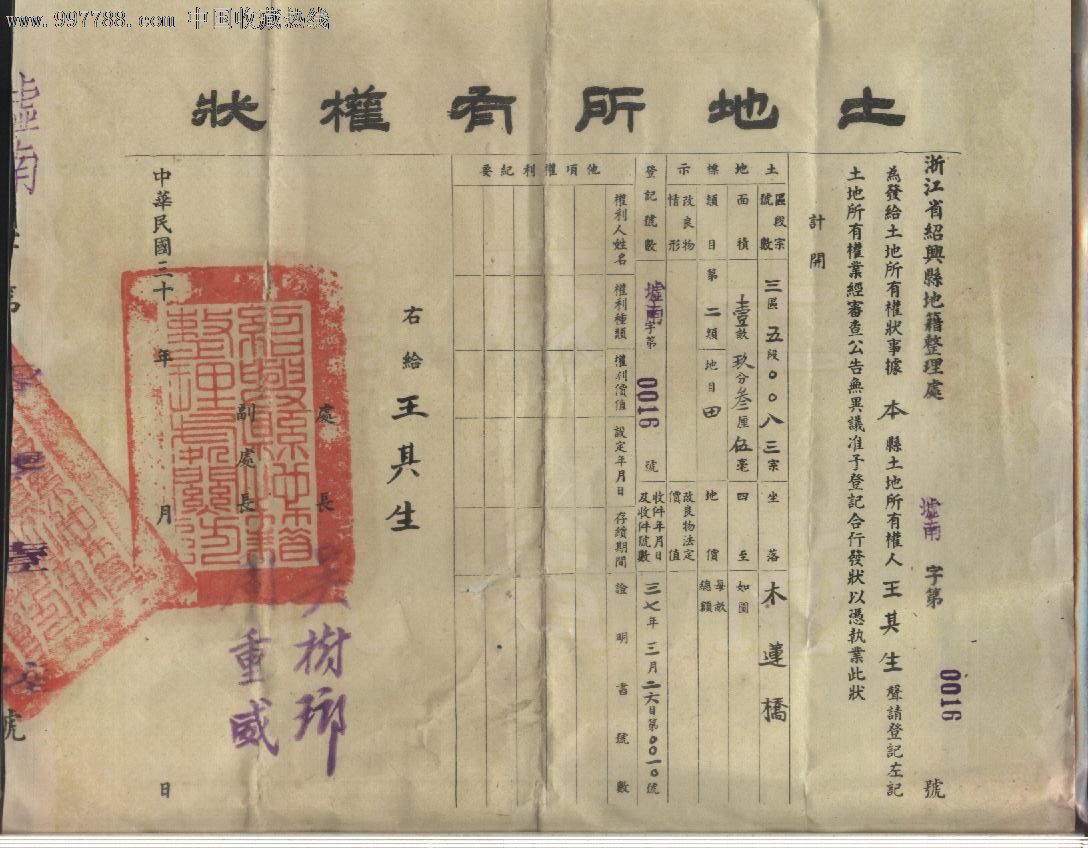 www.997788.com 中国收藏热线
土地所有權狀
浙江省紹興縣地籍整理處 墟南 字第 0016 號
為發給土地所有權狀事據 本 縣土地所有權人 王其生 聲請登記左記
土地所有權業經審查公告無異議准予登記合行發狀以憑執業此狀
計開
土地標示
區段宗號數 三區五段00八三宗 坐落 木蓮橋
面積 壹畝玖分叁厘伍毫 四至 如圖
類目 第二類地目田 地價 每畝 總額
改良物情形 改良物法定價值
登記號數 墟南字第 0016 號 收件年月日及收件號數 三七年三月二六日第00一0號
他項權利紀要
權利人姓名 權利種類 權利價值 設定年月日 存續期間 證明書號數
右給 王其生
處長 吳樹瑯
副處長 重威
中華民國三十 年 月 日
墟南
號